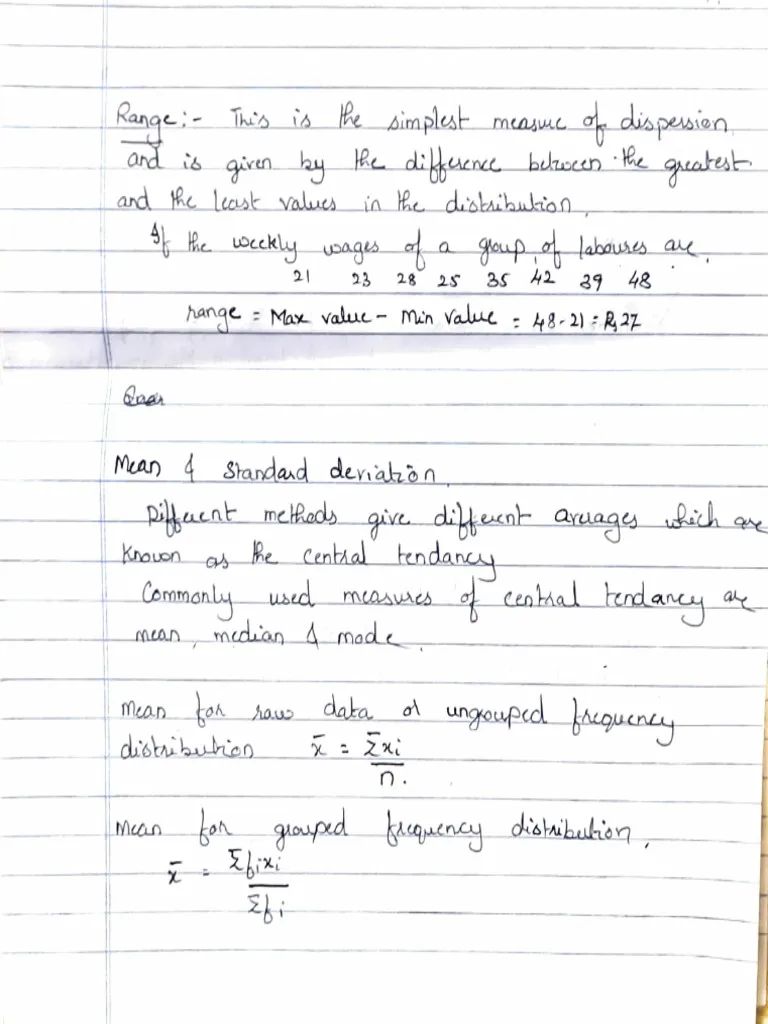 Range:- This is the simplest measure of dispersion
and is given by the difference between the greatest
and the least values in the distribution.
If the weekly wages of a group of laboures are,
21 23 28 25 35 42 39 48
range = Max value - Min value = 48-21 = Rs 27
Mean & standard deviation.
Different methods give different averages which are
known as the central tendancy
Commonly used measures of central tendancy are
mean, median & mode.
Mean for raw data or ungrouped frequency
distribution x̄ = Σxi
n.
Mean for grouped frequency distribution,
x̄ = Σfixi
Σfi